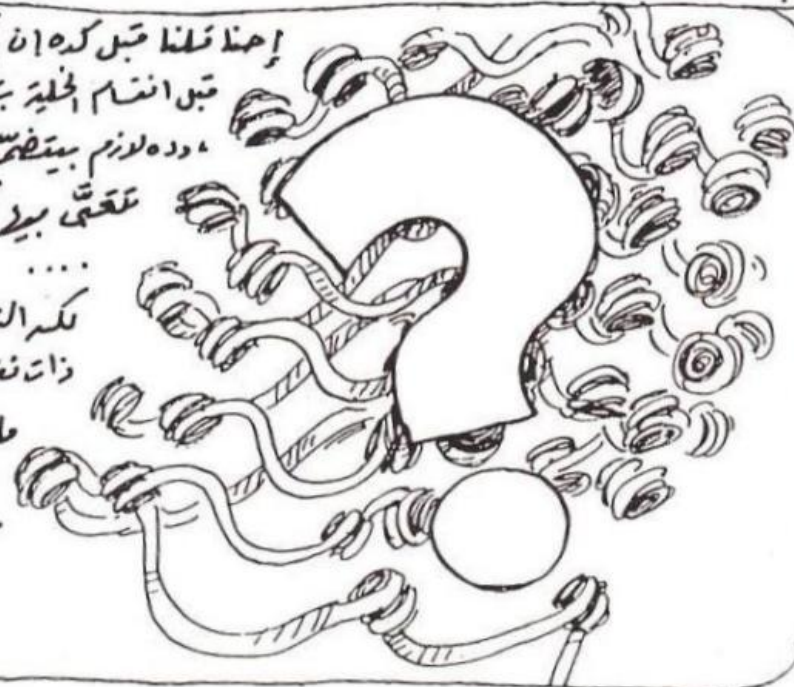 إحنا قلنا قبل كده إن
قبل انقسام الخلية
، وده لازم بيتضمّ
....
لكن
ذات
?